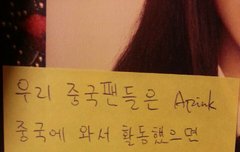 우리 중국팬들은 Apink
중국에 와서 활동했으면